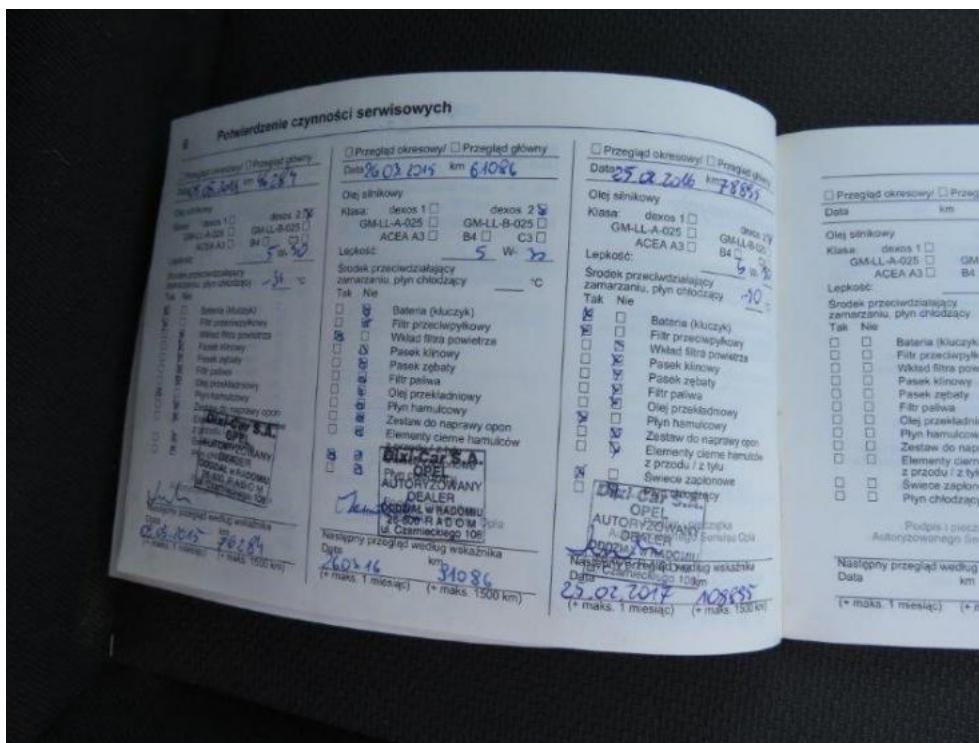 8 Potwierdzenie czynności serwisowych
□ Przegląd okresowy/ □ Przegląd główny
Data km 46284
Olej silnikowy
Klasa: dexos 1 □ dexos 2
GM-LL-A-025 □ GM-LL-B-025 □
ACEA A3 □ B4 □
Lepkość: 5 W- 30
Środek przeciwdziałający
zamarzaniu, płyn chłodzący °C
Tak Nie
Bateria (kluczyk)
Filtr przeciwpyłkowy
Wkład filtra powietrza
Pasek klinowy
Pasek zębaty
Filtr paliwa
Olej przekładniowy
Płyn hamulcowy
Zestaw do naprawy opon
Dixi-Car S.A.
OPEL
AUTORYZOWANY
DEALER
ODDZIAŁ w RADOMIU
26-600 RADOM
Następny przegląd według wskaźnika
Data km
2015 76284
(+ maks. 1 miesiąc) (+ maks. 1500 km)
□ Przegląd okresowy/ □ Przegląd główny
Data 26 03 2015 km 61086
Olej silnikowy
Klasa: dexos 1 □ dexos 2
GM-LL-A-025 □ GM-LL-B-025 □
ACEA A3 □ B4 □ C3 □
Lepkość: 5 W- 30
Środek przeciwdziałający
zamarzaniu, płyn chłodzący °C
Tak Nie
Bateria (kluczyk)
Filtr przeciwpyłkowy
Wkład filtra powietrza
Pasek klinowy
Pasek zębaty
Filtr paliwa
Olej przekładniowy
Płyn hamulcowy
Zestaw do naprawy opon
Elementy cierne hamulców
z przodu / z tyłu
Dixi-Car S.A.
OPEL
AUTORYZOWANY
DEALER
ODDZIAŁ w RADOMIU
26-600 RADOM
ul. Czarnieckiego 106
Następny przegląd według wskaźnika
Data km
26 03 16 91086
(+ maks. 1 miesiąc) (+ maks. 1500 km)
□ Przegląd okresowy/ □ Przegląd główny
Data 25.02.2016 km 78895
Olej silnikowy
Klasa: dexos 1 □ dexos 2
GM-LL-A-025 □ GM-LL-B
ACEA A3 □ B4 □
Lepkość: 5 W- 30
Środek przeciwdziałający
zamarzaniu, płyn chłodzący
Tak Nie
Bateria (kluczyk)
Filtr przeciwpyłkowy
Wkład filtra powietrza
Pasek klinowy
Pasek zębaty
Filtr paliwa
Olej przekładniowy
Płyn hamulcowy
Zestaw do naprawy opon
Elementy cierne hamulców
z przodu / z tyłu
Świece zapłonowe
Płyn chłodzący
Dixi-Car S.A.
OPEL
AUTORYZOWANY
DEALER
ODDZIAŁ w RADOMIU
Następny przegląd według wskaźnika
Data km
25.02.2017 108895
(+ maks. 1 miesiąc) (+ maks. 1500 km)
□ Przegląd okresowy/ □ Przeg
Data km
Olej silnikowy
Klasa: dexos 1 □
GM-LL-A-025 □ GM
ACEA A3 □ B4
Lepkość:
Środek przeciwdziałający
zamarzaniu, płyn chłodzący
Tak Nie
□ □ Bateria (kluczyk
□ □ Filtr przeciwpył
□ □ Wkład filtra pow
□ □ Pasek klinowy
□ □ Pasek zębaty
□ □ Filtr paliwa
□ □ Olej przekładni
□ □ Płyn hamulcow
□ □ Zestaw do nap
□ □ Elementy ciern
z przodu / z tyłu
□ □ Świece zapłon
□ □ Płyn chłodząc
Podpis i piecz
Autoryzowanego Se
Następny przegląd według
Data km
(+ maks. 1 miesiąc)